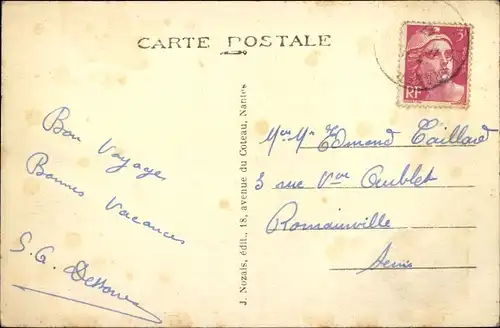 CARTE POSTALE
3F
RF
Bon Voyage
Bonnes Vacances
S. G.
J. Nozais, édit., 18, avenue du Coteau, Nantes
Edmond Taillard
3 rue Vve Aublet
Romainville
Seine